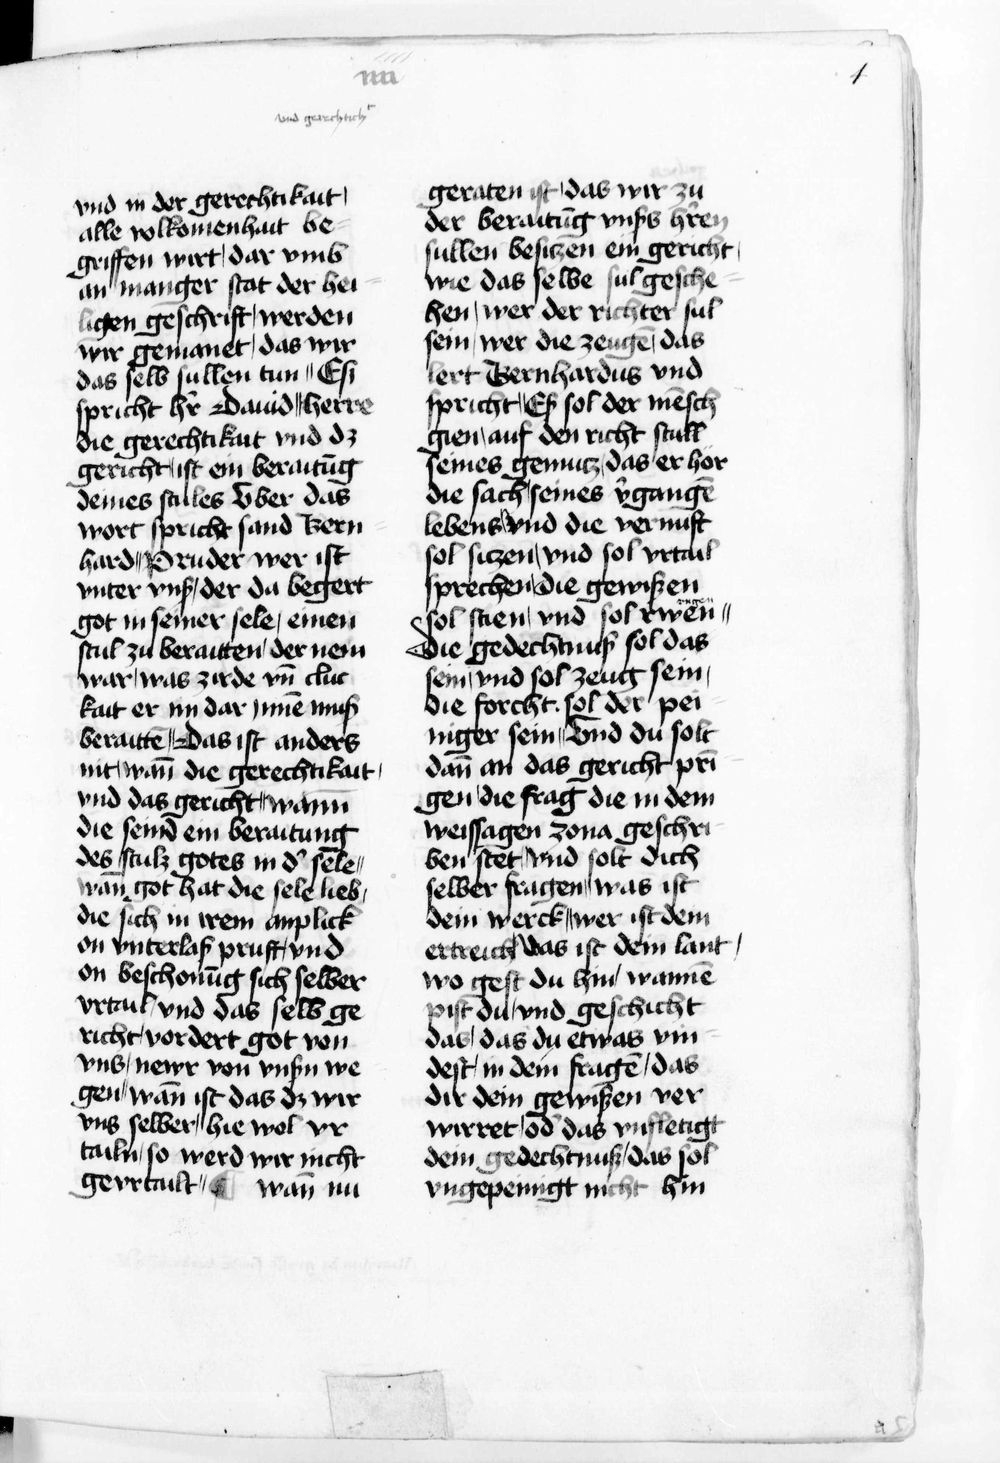 iiii
4
vnd gerechtich
vnd in der gerechtikait /
alle volkomenhait be-
griffen wirt / dar vmb
an manger stat der hei-
ligen geschrift / werden
wir gemanet / das wir
das selb sullen tun // Es
spricht hr̄ Dauid // herre
die gerechtikait vnd dz
gericht / ist ein beraitūg
deines stules Vber das
wort spricht sand Bern-
hard // Bruder wer ist
vnter vnß / der da begert
got in seiner sele / einen
stul zu beraitten / der nem
war / was zirde vn̄
kait er im dar jnnē muß
beraittē // Das ist anders
nit / wan̄ die gerechtikait /
vnd das gericht // wann
die seind ein beraitung
des stulz gotes in d' sele //
wan̄ got hat die sele lieb /
die sich in irem anplick
on vnterlaß pruft / vnd
on beschonūg sich selber
vrtail / vnd das selb ge
richt / vordert got von
vns / newr von vnßm we
gen // wan̄ ist das dz wir
vns selber / hie wol vr
tailn / so werd wir nicht
gevrtailt // ¶ wan̄ nu
geraten ist / das wir zu
der beraitūg vnßs hr̄en
sullen besiczen ein gericht /
wie das selbe sul gesche-
hen / wer der richter sul
sein / wer die zeugē / das
lert Bernhardus vnd
spricht // Es sol der mēsch
gien / auf den richt stull
seines gemutz / das er hör
die sach / seines v̄gangē
lebens / vnd die vernuft
sol siczen / vnd sol vrtail
sprechen / die gewißen
sol stien / vnd sol rwen //
rugen
Die gedechtnuß sol das
sein / vnd sol zeug sein /
die forcht · sol der pei-
niger sein // Vnd du solt
dan̄ an das gericht prī-
gen / die frag die in dem
weissagen Zona geschri-
ben stet / vnd solt dich
selber fragen // was ist
dein werck // wer ist dem
ertreich / was ist dein lant /
wo gest du hin / wannē
pist du / vnd geschicht
das / das du etwas vin-
dest / in dein fragē / das
dir dein gewißen ver
wirret / od' das vnfletigt
dem gedechtnuß / das sol
vngepeinigt nicht hin